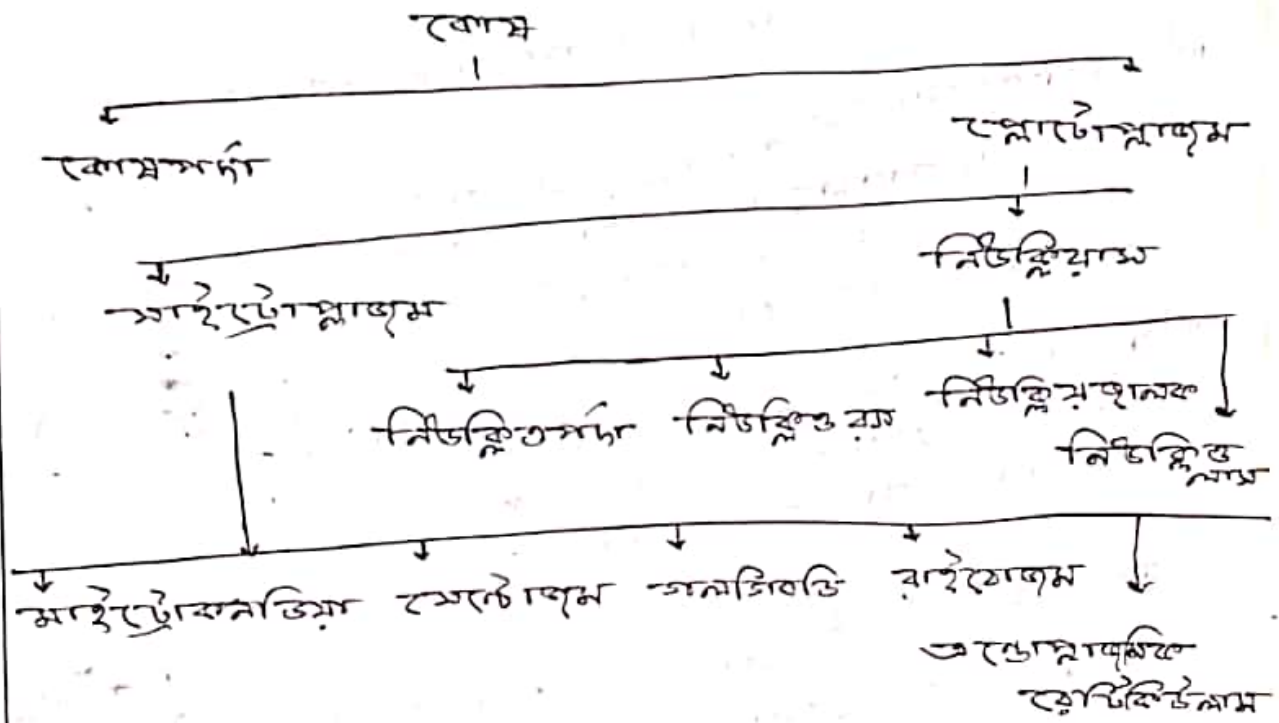 কোষ
কোষপর্দা
প্লোটোপ্লাজম
সাইট্রোপ্লাজম
নিউক্লিয়াস
নিউক্লিওপর্দা নিউক্লিওরস নিউক্লিয়জালক
নিউক্লিও
লাস
মাইট্রোকনডিয়া সেন্টোজম গলজিবডি রাইবোজম
এন্ডোপ্লাজমিক
রেটিকিউলাম